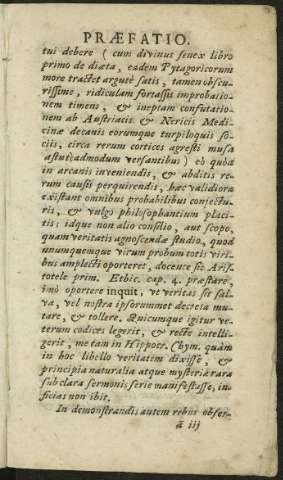 PRÆFATIO.
tui debere (cum divinus senex libro
primo de diæta, eadem Pytagoricorum
more tractet argutè satis, tamen obscu-
rissimè, ridiculam fortassis improbatio-
nem timens, & ineptam confutatio-
nem ab Austriacis & Nericis Medi-
cinæ decanis eorumque turpiloquiis so-
ciis, circa rerum cortices agresti musa
astutè admodum versantibus) eò quòd
in arcanis inveniendis, & abditis re-
rum causis perquirendis, hæc validiora
existant omnibus probabilibus conjectu-
ris, & vulgò philosophantium placi-
tis: idque non alio consilio, aut scopo,
quàm veritatis agnoscendæ studio, quod
unumquemque virum probum totis viri-
bus amplecti oporteret, docente sic Aris-
totele prim. Ethic. cap. 4. præstare,
imò oportere inquit, ut veritas sit sal-
va, vel nostra ipsorummet decreta mu-
tare, & tollere. Quicumque igitur ve-
terum codices legerit, & rectè intelli-
gerit, me tam in Hippocr. Chym. quàm
in hoc libello veritatem dixisse, &
principia naturalia atque mysteria rara
sub clara sermonis serie manifestasse, in-
ficias non ibit.
In demonstrandis autem rebus obser-
ã iij